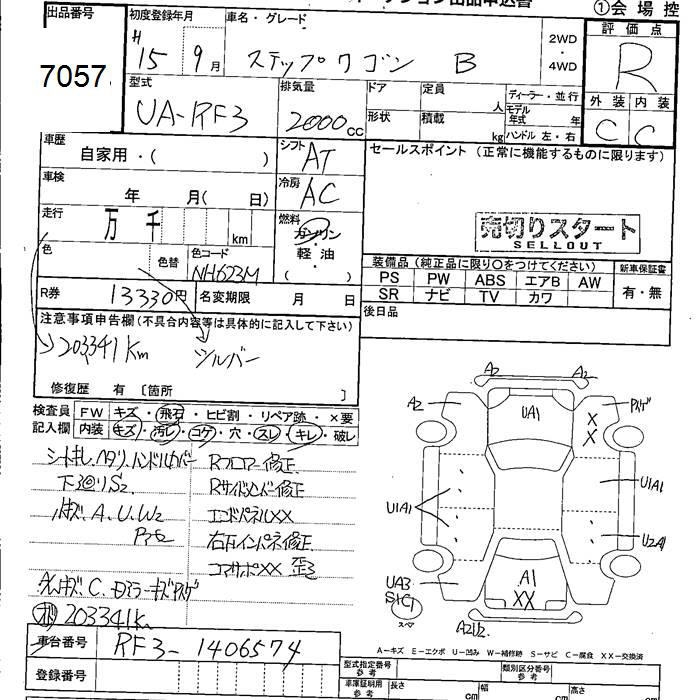 ①会場控
出品番号
7057
初度登録年月
H 15 9月
車名・グレード
ステップワゴン B
2WD
・
4WD
評価点
R
外装 内装
C C
型式
UA-RF3
排気量
2000cc
ドア
形状
定員 人
積載 kg
ディーラー・並行
モデル年式 年
ハンドル 左・右
車歴
自家用・( )
シフト
AT
セールスポイント (正常に機能するものに限ります)
車検
年 月( 日)
冷房
AC
走行
万 千 km
燃料
ガソリン
・
軽油
( )
売切りスタート
SELLOUT
色
色替
色コード
NH623M
装備品(純正品に限り○をつけてください)
新車保証書
PS PW ABS エアB AW
SR ナビ TV カワ
有・無
R券
13330円
名変期限 月 日
後日品
注意事項申告欄(不具合内容等は具体的に記入して下さい)
203341Km
シルバー
修復歴 有 [箇所 ]
検査員
記入欄
FW キズ・飛石・ヒビ割・リペア跡・×要
内装 キズ・汚レ・コゲ・穴・スレ・キレ・破レ
Rフロアー修正
下廻りS2
エンドパネルXX
A.U.W2
203341K
車台番号
RF3-1406574
登録番号
A2
A2
A2
UA1
X
X
U1A1
U1A1
U2A1
UA3
S1C1
A1
XX
A2U2
A-キズ E-エクボ U-凹み W-補修跡 S-サビ C-腐食 XX-交換済
型式指定番号
参考
類別区分番号
参考
車庫証明用
参考
長さ cm
幅 cm
高さ cm